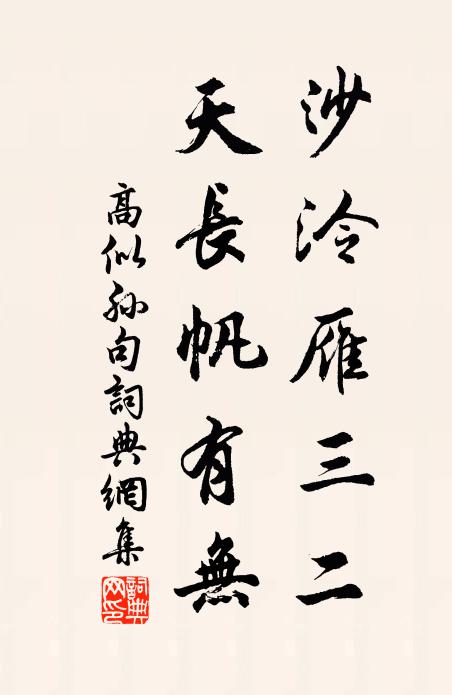 沙泠雁三二
天長帆有無
高似孫句詞典網集
詞典网印